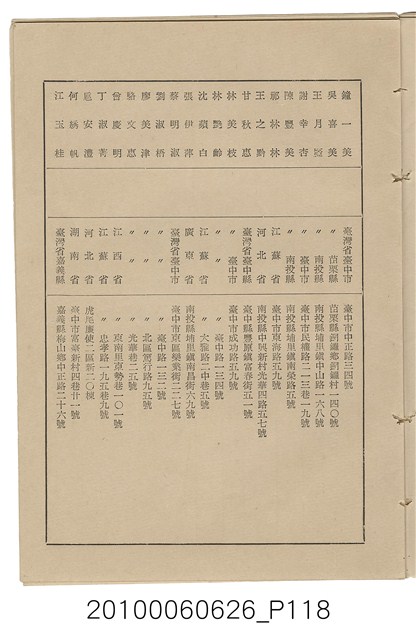 鐘一美 臺灣省臺中市 臺中市中正路三四號
吳喜美 〃 苗栗縣 苗栗縣銅鑼鄉銅鑼村一四〇號
王月 〃 南投縣 南投縣埔里鎮中山路一六八號
謝幸杏 〃 臺中市 臺中市民權路二一三巷一九號
陳豐美 〃 南投縣 南投縣埔里鎮南榮路五號
郭林林 江蘇省 臺中市東海路五九號
王之黔 河北省 南投縣中興新村光華四路五七號
甘秋惠 臺灣省臺中縣 臺中縣豐原鎮富春街五一號
林美枝 〃 臺中市 臺中市成功路五九號
林艷齡 〃 〃 臺中路一三四號
沈蘋白 江蘇省 〃 大雅路二中巷五號
張伊萍 廣東省 南投縣埔里鎮南昌街六九號
蔡明淑 臺灣省臺中市 臺中市東區樂業街二二七號
劉淑梧 〃 〃 〃 臺中路一三二號
廖美津 〃 〃 〃 北區篤行路九五號
駱文惠 〃 〃 〃 光華巷二五號
曾慶明 江西省 〃 東南里東勢巷一〇一號
丁淑菁 江蘇省 〃 忠孝路一九五巷九號
安澧 河北省 虎尾廉使二區新二〇棟
何綉帆 湖南省 臺中市富臺新村四巷廿一號
江玉桂 臺灣省嘉義縣 嘉義縣梅山鄉中正路二十六號
20100060626_P118